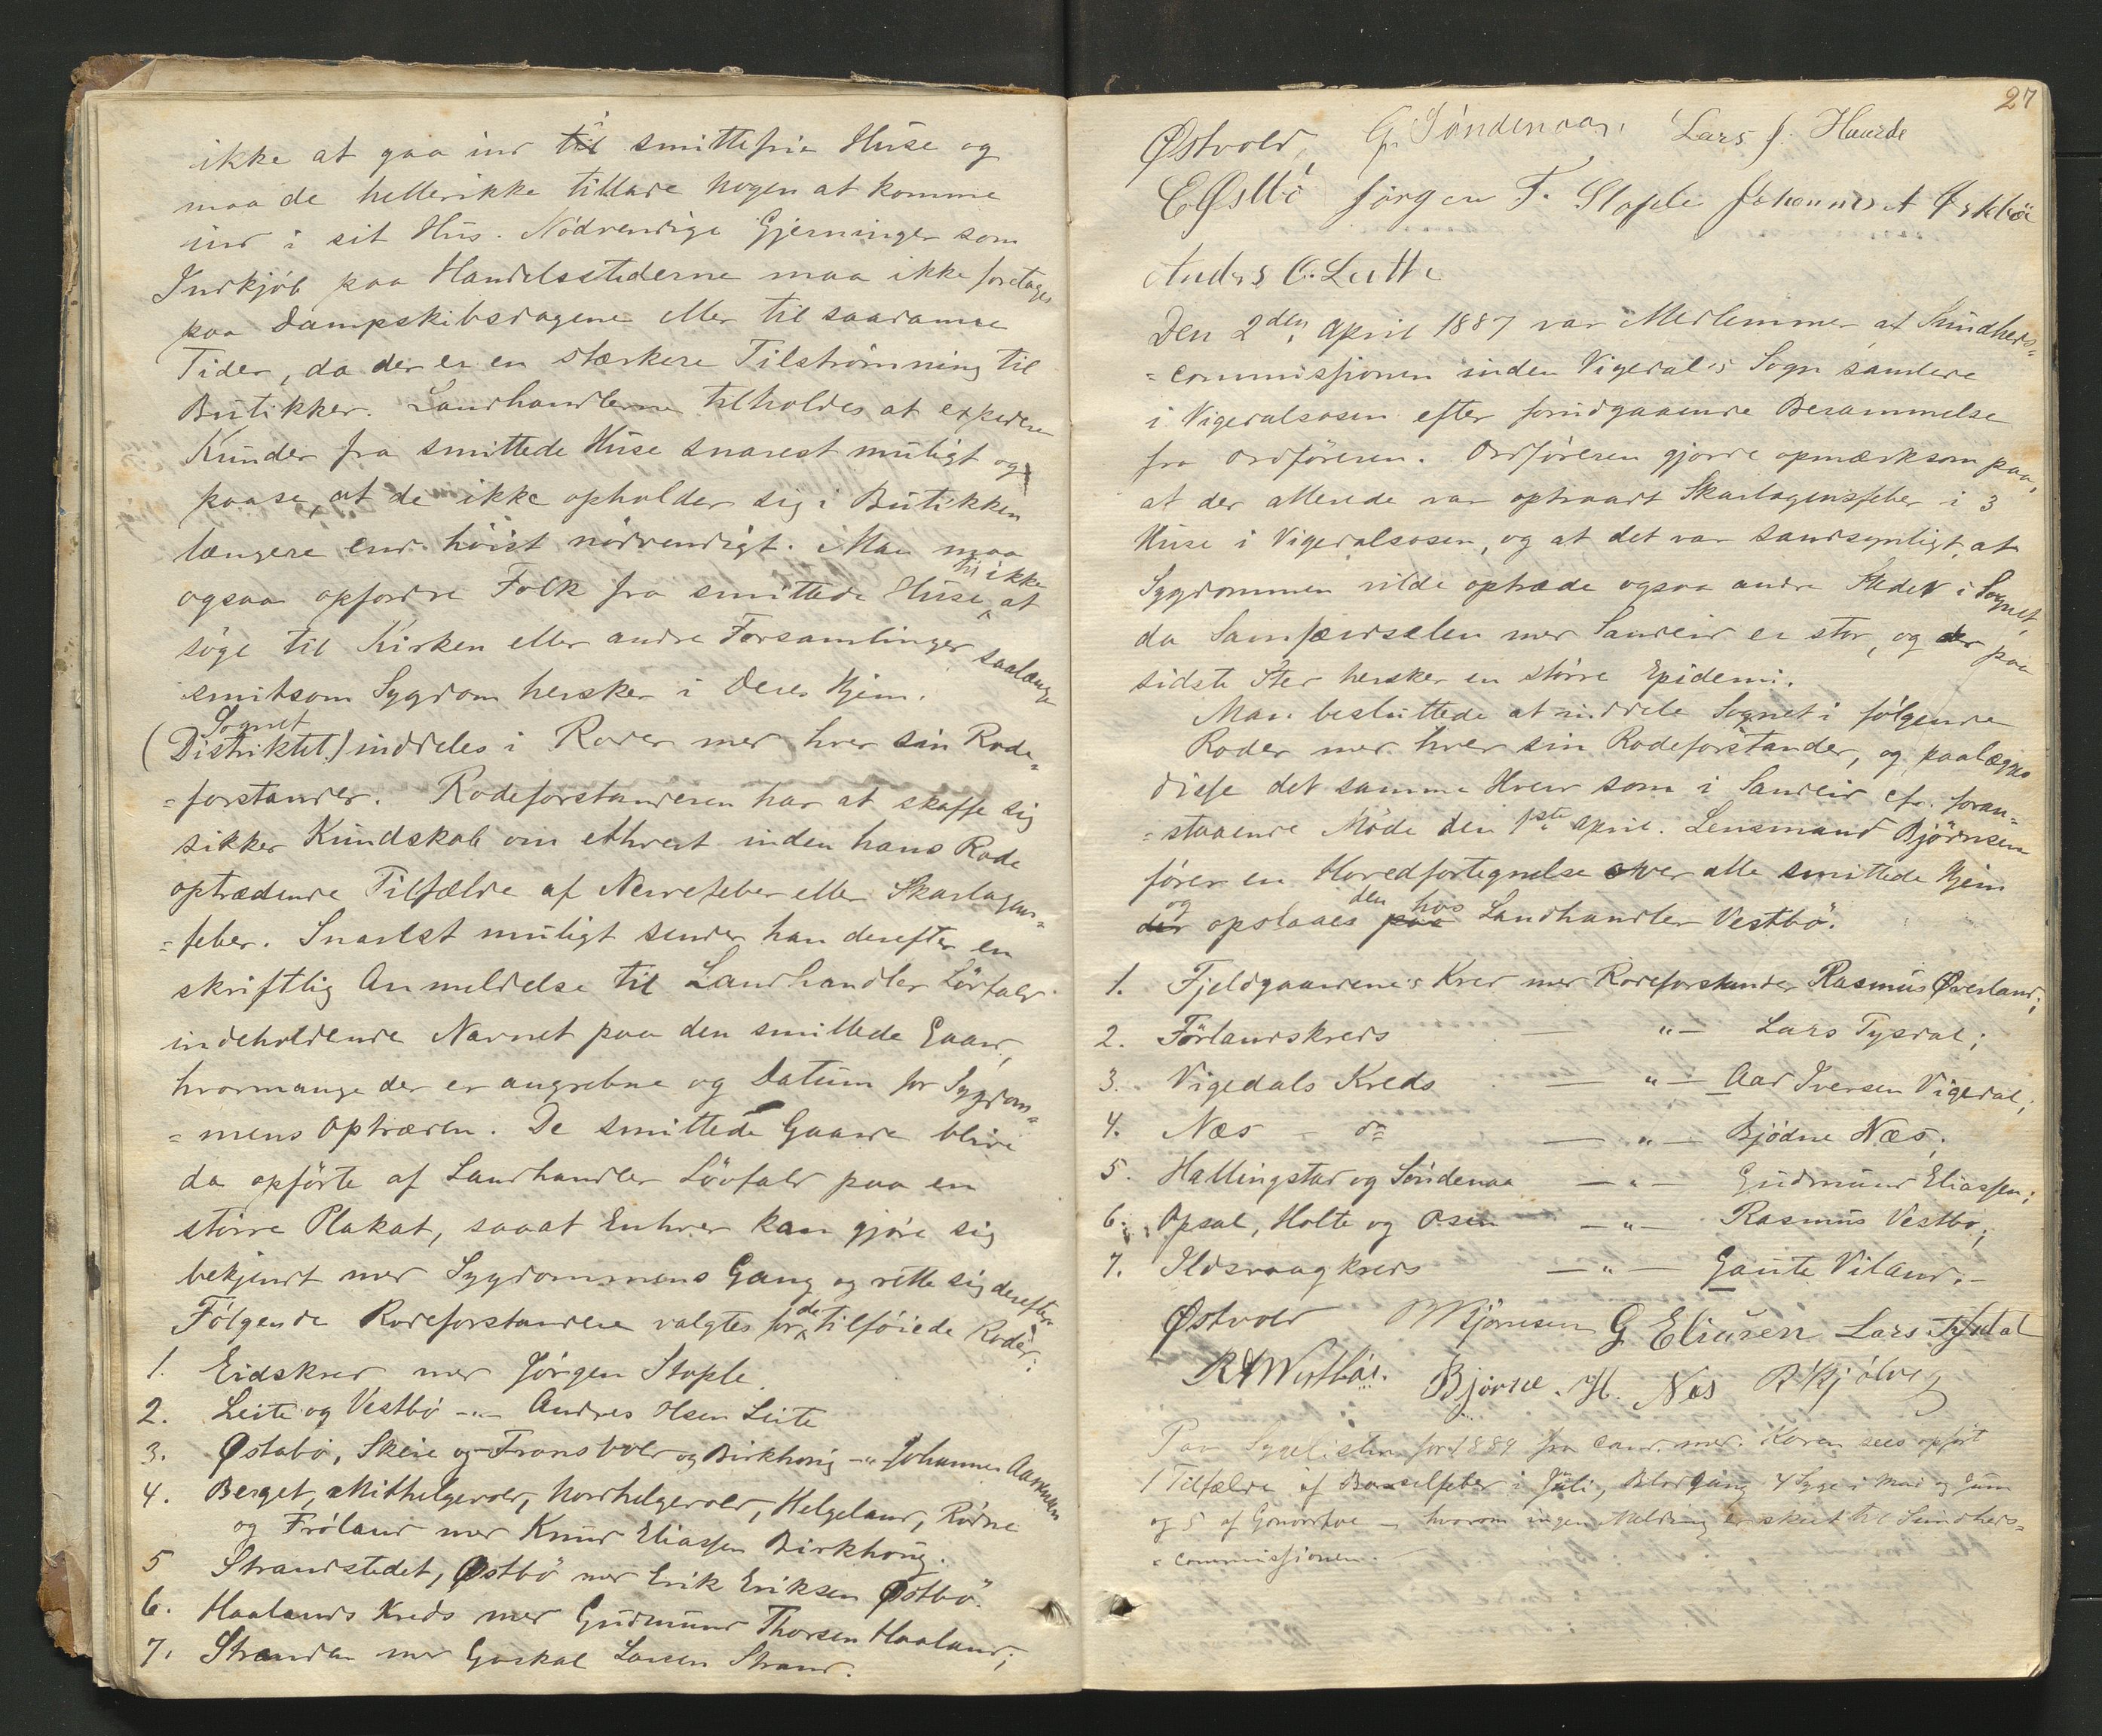 ikke at gaa ind i smittefrie Huse og
maa de hellerikke tillade nogen at komme
ind i sit Hus. Nödvendige Gjerninger som
Indkjöb paa Handelsstederne maa ikke foretages
paa Dampskibsdagene eller til saadanne
Tider, da der er en stærkere Tilströmning til
Butikker. Landhandlerne tilholdes at expedere
Kunder fra smittede Huse snarest muligt og
paase, at de ikke opholder sig i Butikken
længere end höist nödvendigt. Man maa
ogsaa opfordre Folk fra smittede Huse til ikke at
söge til Kirken eller andre Forsamlinger saalænge
smitsom Sygdom hersker i Deres Hjem.
Sognet
(Distriktet) inddeles i Roder med hver sin Rode-
=forstander. Rodeforstanderen har at skaffe sig
sikker Kundskab om ethvert inden hans Rode
optrædende Tilfælde af Nervefeber eller Skarlagens-
=feber. Snarest muligt sender han derefter en
skriftlig Anmeldelse til Landhandler Lövfald
indeholdende Navnet paa den smittede Gaard,
hvormange der er angrebne og Datum for Sygdom=
=mens Optræden. De smittede Gaarde blive
da opförte af Landhandler Lövfald paa en
större Plakat, saaat Enhver kan gjöre sig
bekjendt med Sygdommens Gang og rette sig derefter.
Fölgende Rodeforstandere valgtes for de tilföiede Roder:
1. Eidskred med Jörgen Stople.
2. Leite og Vestbö -"- Andres Olsen Leite
3. Östabö, Skeie og Fransvold og Birkhoug -" Johannes
4. Berget, Midthelgevold, Nordhelgevold, Helgeland, Rödne
og Fröland med Knud Eliassen Birkhoug.
5 Strandstedet, Östbö med Erik Eriksen Östbö.
6. Haalands Kreds med Gudmund Thorsen Haaland;
7. Stranden med Gaskal Larsen Strand.
27
Østvold, G. Söndenaa, Lars J. Hauvde
E Østbö Jörgen T. Stople Johannes A
Anders O. Leitte
Den 2den April 1887 var Medlemmer af Sundheds=
=commissionen inden Vigedal's Sogn samlede
i Vigedalsosen efter forudgaaende Berammelse
fra Ordföreren. Ordföreren gjorde opmærksom paa,
at der allerede var optraadt Skarlagensfeber i 3
Huse i Vigedalsosen, og at det var sandsynligt, at
Sygdommen vilde optræde ogsaa andre Steder i Sognet,
da Samfærdselen med Sandeid er stor, og der paa
sidste Sted hersker en större Epidemi.
Man besluttede at inddele Sognet i fölgende
Roder med hver sin Rodeforstander, og paalægges
disse det samme Hverv som i Sandeid cfr. foran=
=staaende Möde den 1ste April. Lensmand Björnsen
förer en Hovedfortegnelse over alle smittede Hjem
og opslaaes den hos Landhandler Vestbö.
1. Fjeldgaardene's Kred med Rodeforstander Rasmus Øverland;
2. Förlandskreds — "— Lars Tysdal;
3. Vigedals Kreds — "— Aad Iversen Vigedal;
4. Næs - do — "— Bjödne Næs;
5. Hallingstad og Söndenaa —"— Gudmund Eliassen;
6. Opsal, Holte og Osen —"— Rasmus Vestbö;
7. Ildsvaag kreds —"— Gaute Viland.-
Østvold Björnsen G Eliasen Lars Tysdal
R A Westböe. Bjödne. H. Næs
Paa Sygelisten for 1889 fra Cand. med. Koren sees opfört
1 Tilfælde af Barselfeber i Juli, Blodgang 4 Syge i Mai og Juni
og 5 af Gonorrhoe — hvorom ingen Melding er skeet til Sundheds=
=commissionen.